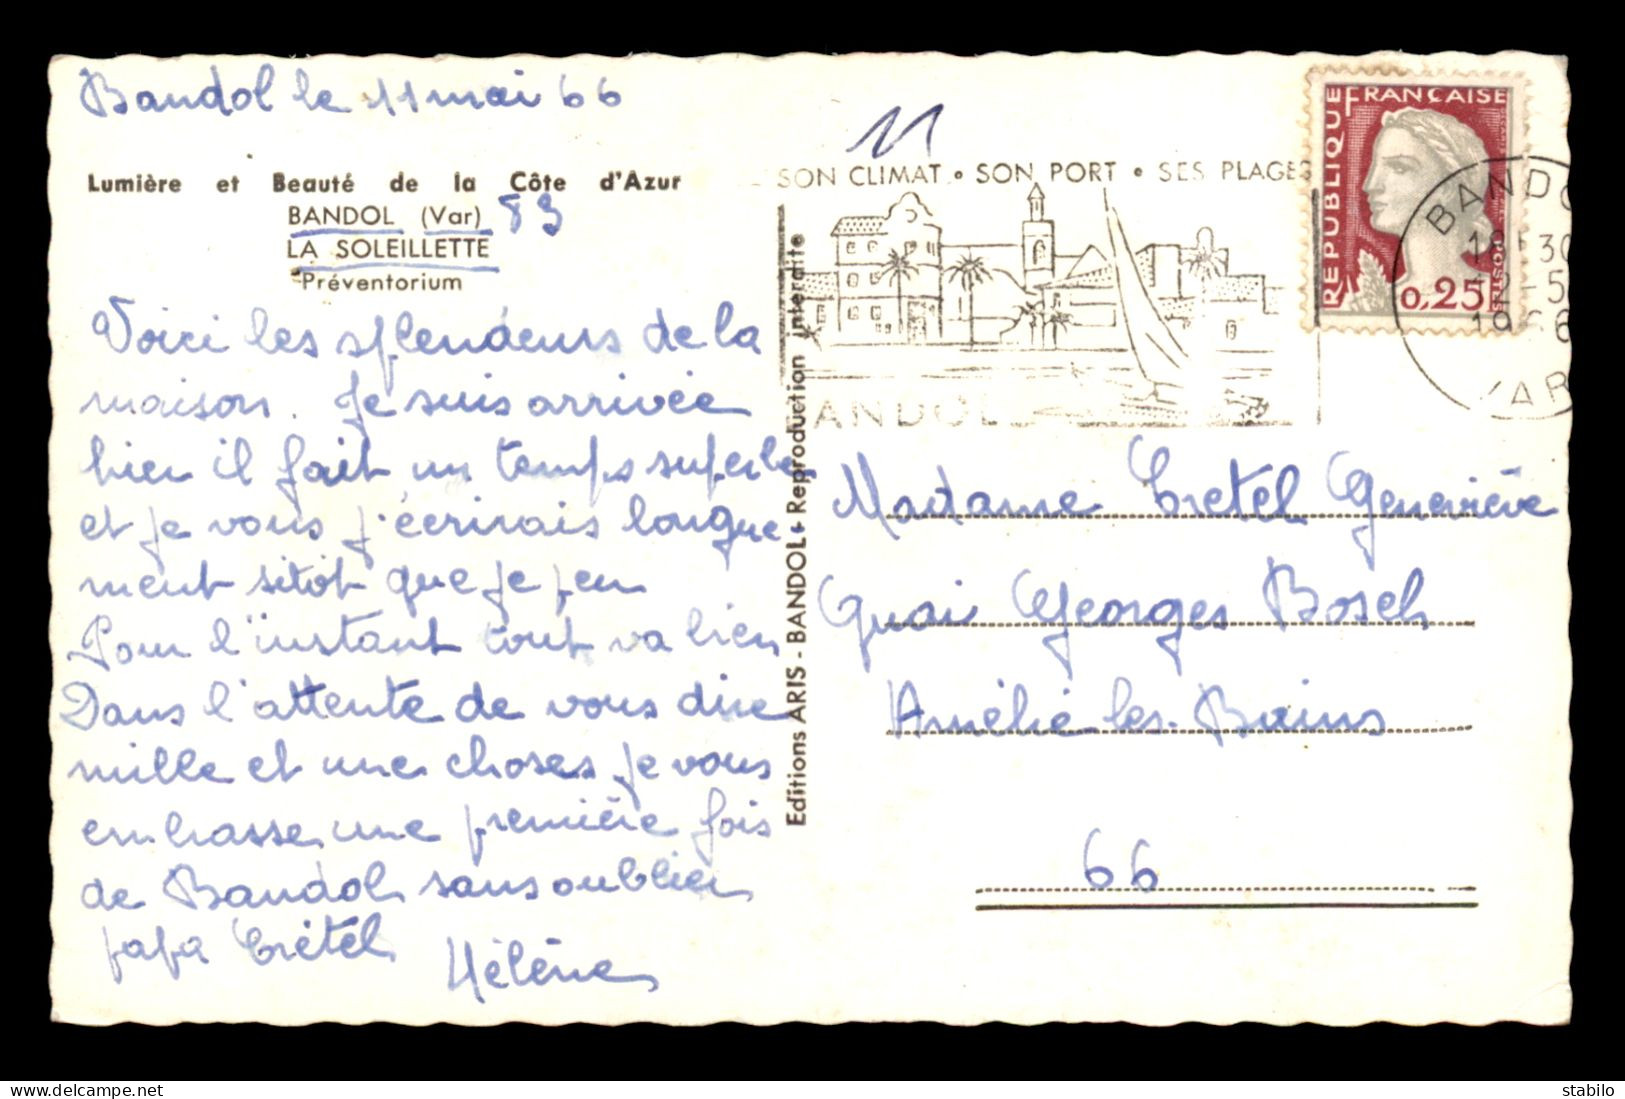 Bandol le 11 mai 66
Lumière et Beauté de la Côte d'Azur
BANDOL (Var) 83
LA SOLEILLETTE
Préventorium
Voici les splendeurs de la
maison. Je suis arrivée
hier il fait un temps superbe
et je vous j'écrirais longue
ment sitôt que je peu
Pour l'instant tout va bien
Dans l'attente de vous dire
mille et une choses je vous
embrasse une première fois
de Bandol sans oublier
papa Crétel
Hélène
Editions ARIS - BANDOL + Reproduction interdite
11
SON CLIMAT • SON PORT • SES PLAGES
BANDOL
REPUBLIQUE FRANÇAISE
0,25
BANDO
18 30
-5
1966
VAR
Madame Cretel Geneviève
Quai Georges Bosch
Amélie les Bains
66
stabilo